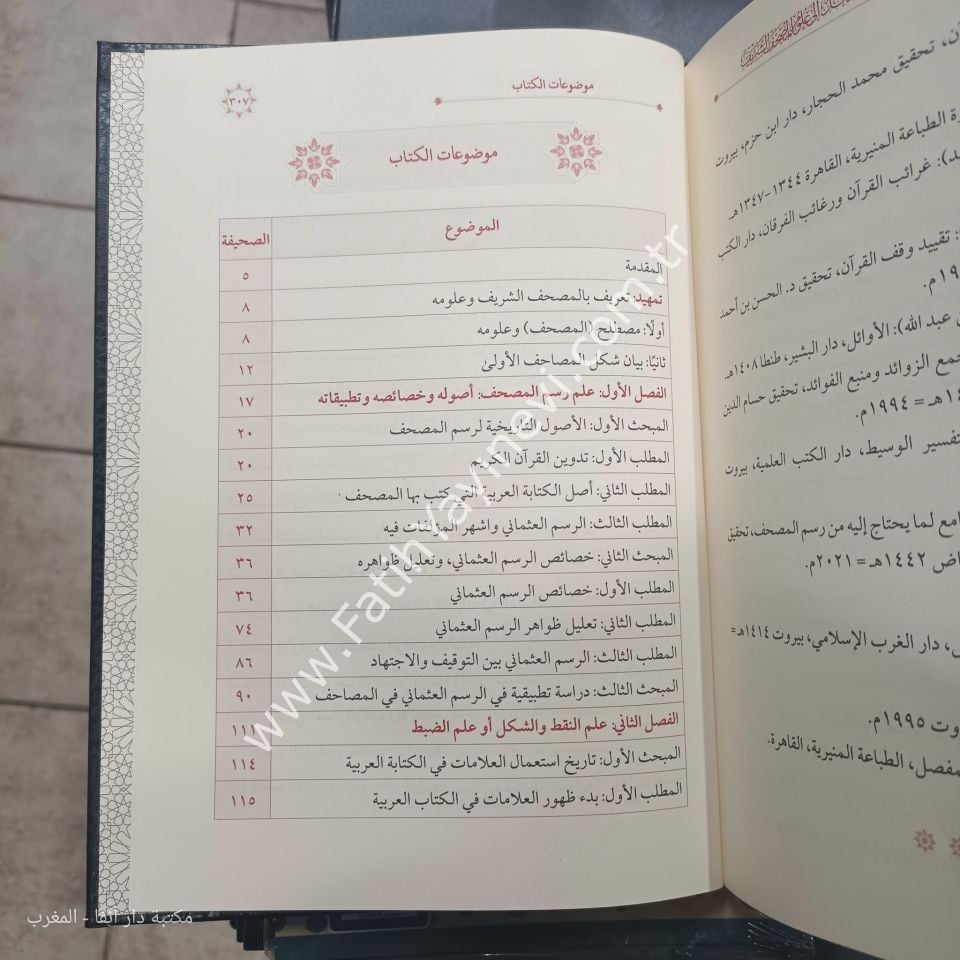 موضوعات الكتاب
٣٠٧
موضوعات الكتاب
الموضوع الصحيفة
المقدمة ٥
تمهيد: تعريف بالمصحف الشريف وعلومه ٨
أولًا: مصطلح (المصحف) وعلومه ٨
ثانيًا: بيان شكل المصاحف الأولىٰ ١٢
الفصل الأول: علم رسم المصحف: أصوله وخصائصه وتطبيقاته ١٧
المبحث الأول: الأصول التاريخية لرسم المصحف ٢٠
المطلب الأول: تدوين القرآن الكريم ٢٠
المطلب الثاني: أصل الكتابة العربية التي كتب بها المصحف ٢٥
المطلب الثالث: الرسم العثماني واشهر المؤلفات فيه ٣٢
المبحث الثاني: خصائص الرسم العثماني، وتعليل ظواهره ٣٦
المطلب الأول: خصائص الرسم العثماني ٣٦
المطلب الثاني: تعليل ظواهر الرسم العثماني ٧٤
المطلب الثالث: الرسم العثماني بين التوقيف والاجتهاد ٨٦
المبحث الثالث: دراسة تطبيقية في الرسم العثماني في المصاحف ٩٠
الفصل الثاني: علم النقط والشكل أو علم الضبط ١١١
المبحث الأول: تاريخ استعمال العلامات في الكتابة العربية ١١٤
المطلب الأول: بدء ظهور العلامات في الكتاب العربية ١١٥
ن، تحقيق محمد الحجار، دار ابن حزم، بيروت
رة الطباعة المنيرية، القاهرة ١٣٤٤-١٣٤٧هـ.
د): غرائب القرآن ورغائب الفرقان، دار الكتب
: تقييد وقف القرآن، تحقيق د. الحسن بن أحمد
م.
ن عبد الله): الأوائل، دار البشير، طنطا ١٤٠٨هـ.
جمع الزوائد ومنبع الفوائد، تحقيق حسام الدين
هـ = ١٩٩٤م.
تفسير الوسيط، دار الكتب العلمية، بيروت
امع لما يحتاج إليه من رسم المصحف، تحقيق
اض ١٤٤٢هـ = ٢٠٢١م.
، دار الغرب الإسلامي، بيروت ١٤١٤هـ=
وت ١٩٩٥م.
مفصل، الطباعة المنيرية، القاهرة.
www.FatihYayinevi.com.tr
مكتبة دار انفا - المغرب